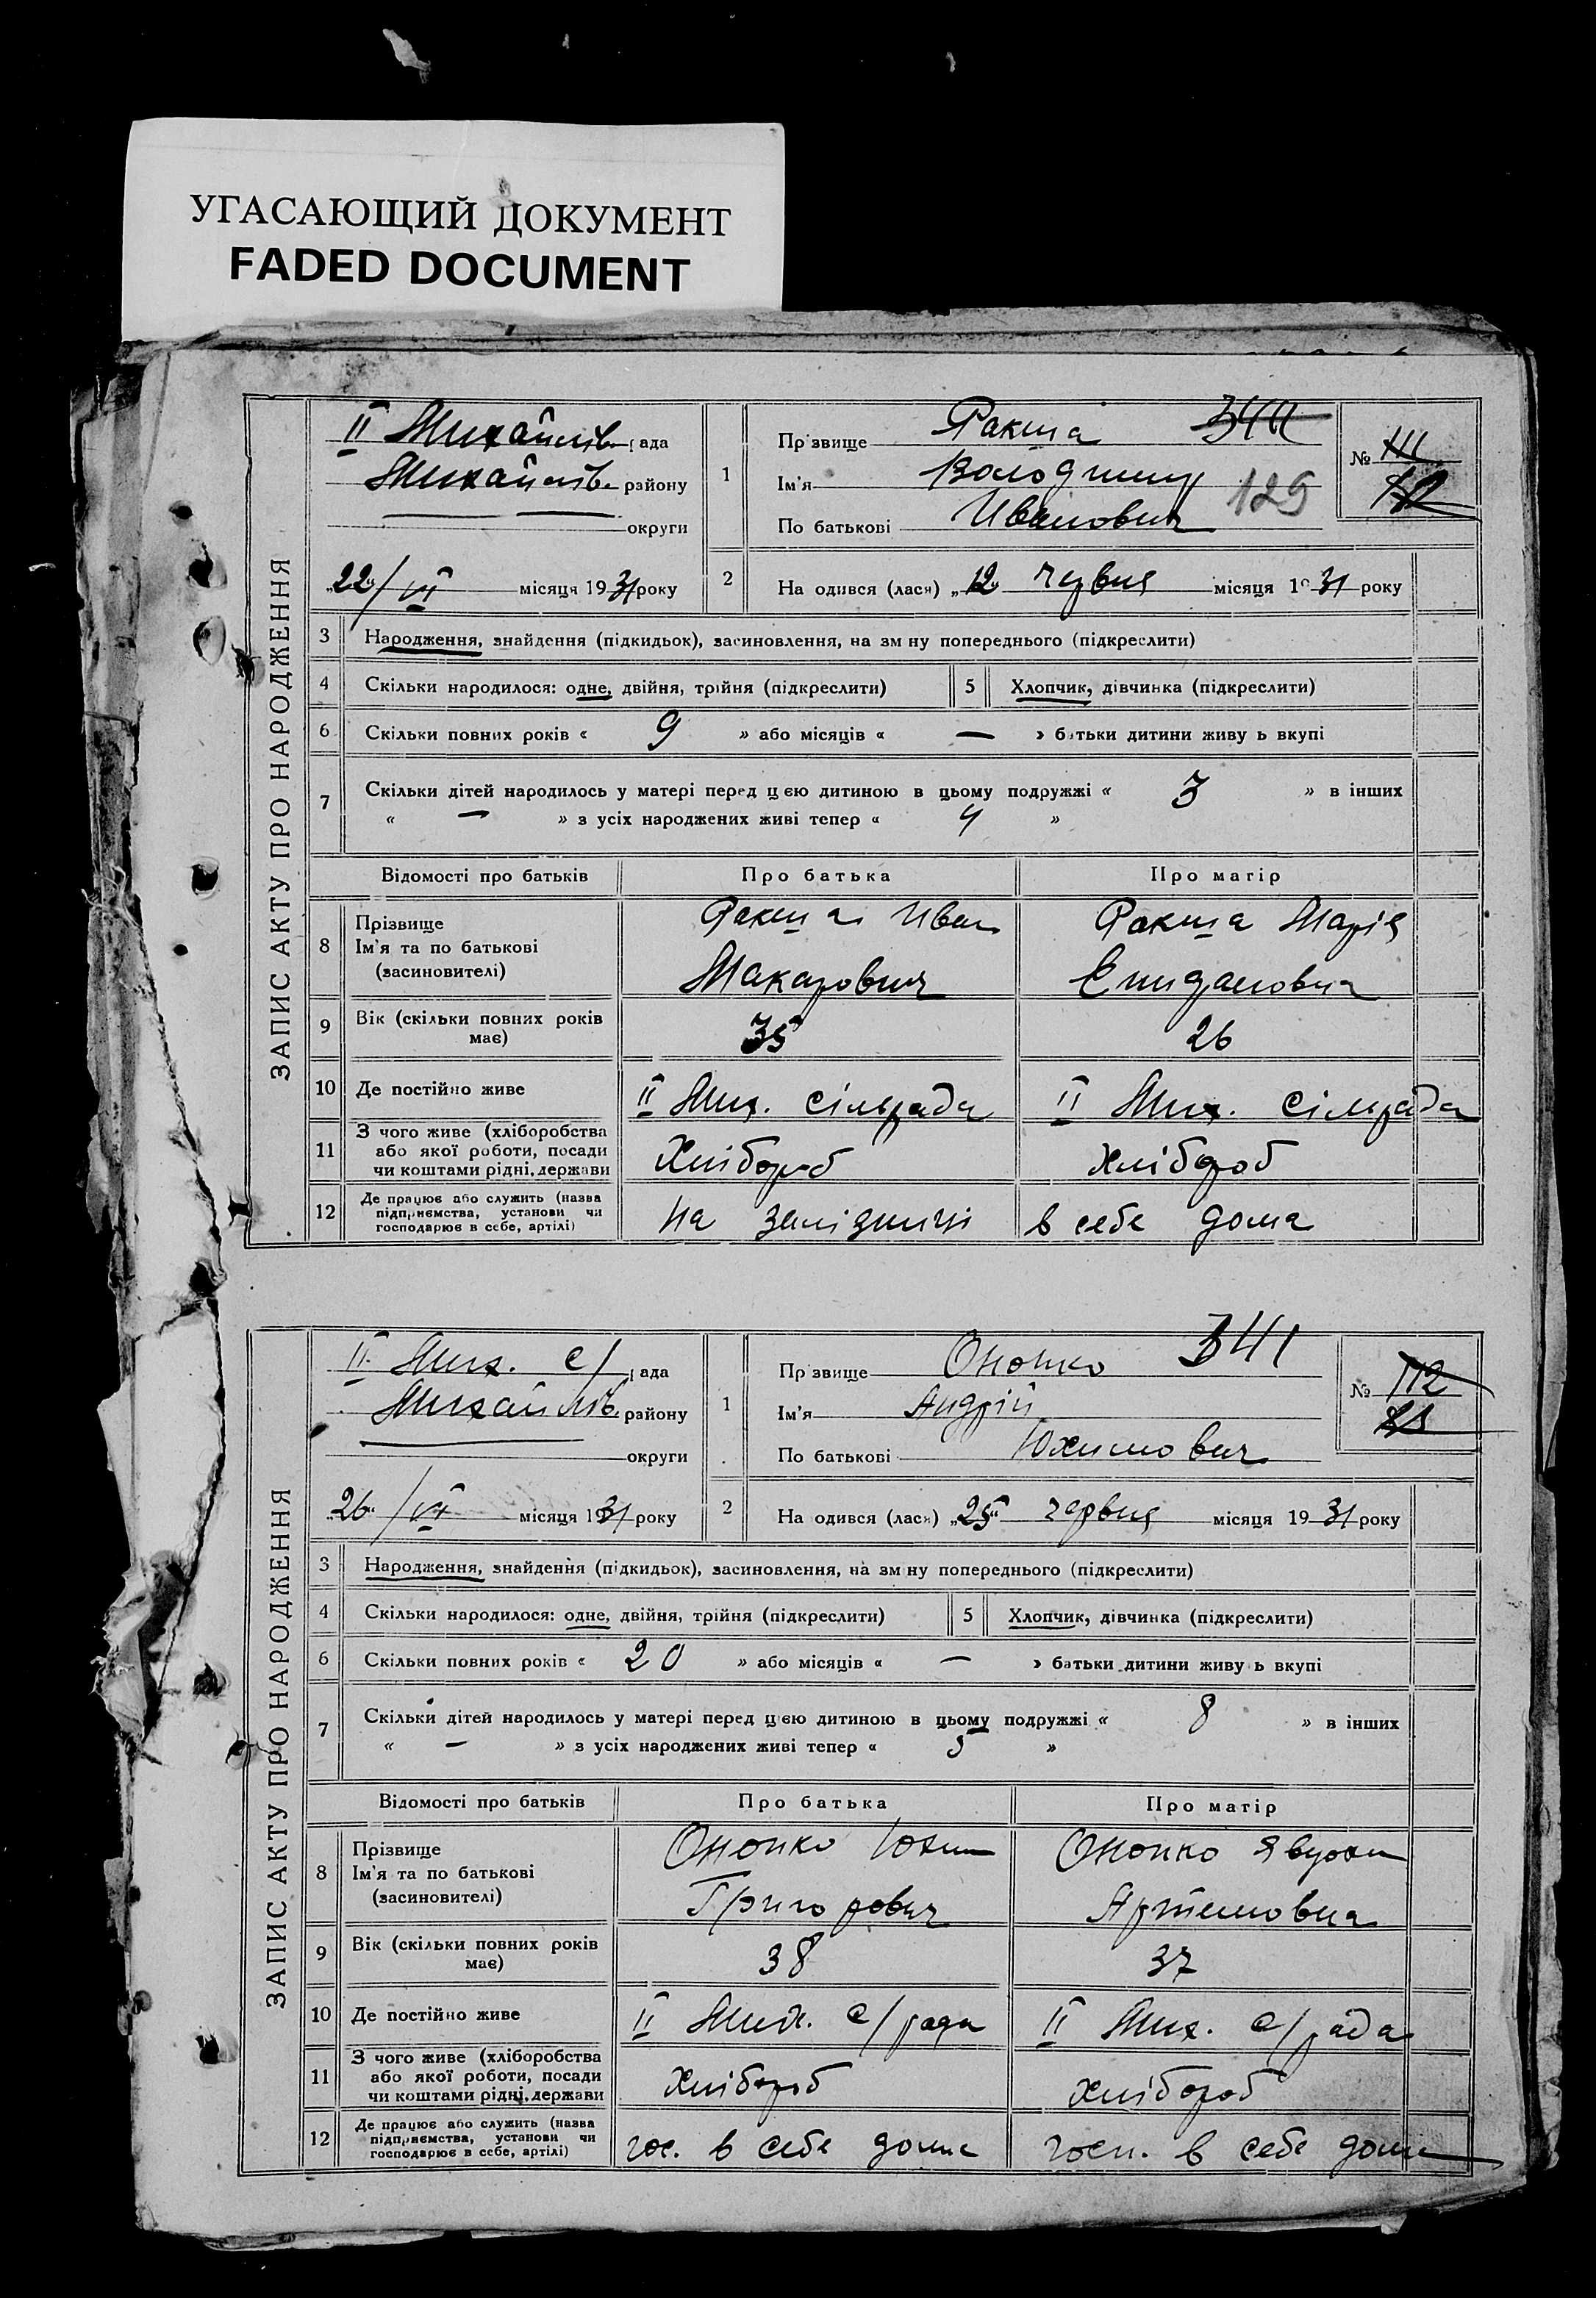 УГАСАЮЩИЙ ДОКУМЕНТ
FADED DOCUMENT
ЗАПИС АКТУ ПРО НАРОДЖЕННЯ
II Михайлів. рада
Михайлів. району
округи
"22" / VI місяця 1931 року
1
Пр звище Ракша
Ім'я Володимир
По батькові Иванович
129
№ 111
2
На одився (лася) "12" червня місяця 1931 року
3 Народження, знайдення (підкидьок), засиновлення, на зм ну попереднього (підкреслити)
4 Скільки народилося: одне, двійня, трійня (підкреслити) 5 Хлопчик, дівчинка (підкреслити)
6 Скільки повних років « 9 » або місяців « — » батьки дитини живу ь вкупі
7 Скільки дітей народилось у матері перед цією дитиною в цьому подружжі « 3 » в інших
« — » з усіх народжених живі тепер « 4 »
Відомості про батьків Про батька Про матір
8 Прізвище
Ім'я та по батькові
(засиновителі)
Ракша Иван
Макарович
Ракша Марія
9 Вік (скільки повних років
має)
35 26
10 Де постійно живе II Мих. сільрада II Мих. сільрада
11 З чого живе (хліборобства
або якої роботи, посади
чи коштами рідні, держави
Хлібороб хлібороб
12 Де працює або служить (назва
підприємства, установи чи
господарює в себе, артілі)
На залізниці в себе дома
ЗАПИС АКТУ ПРО НАРОДЖЕННЯ
II Мих. с/ рада
Михайлів. району
округи
"26" / VI місяця 1931 року
1
341
Пр звище Онопко
Ім'я Андрій
По батькові Юхимович
№ 112
2
На одився (лася) "25" червня місяця 1931 року
3 Народження, знайдення (підкидьок), засиновлення, на зм ну попереднього (підкреслити)
4 Скільки народилося: одне, двійня, трійня (підкреслити) 5 Хлопчик, дівчинка (підкреслити)
6 Скільки повних років « 20 » або місяців « — » батьки дитини живу ь вкупі
7 Скільки дітей народилось у матері перед цією дитиною в цьому подружжі « 8 » в інших
« — » з усіх народжених живі тепер « »
Відомості про батьків Про батька Про матір
8 Прізвище
Ім'я та по батькові
(засиновителі)
Онопко Юхим
Григорович
Онопко
Артемовна
9 Вік (скільки повних років
має)
38 37
10 Де постійно живе II Мих. с/рада II Мих. с/рада
11 З чого живе (хліборобства
або якої роботи, посади
чи коштами рідні, держави
Хлібороб хлібороб
12 Де працює або служить (назва
підприємства, установи чи
господарює в себе, артілі)
гос. в себе дома госп. в себе дома